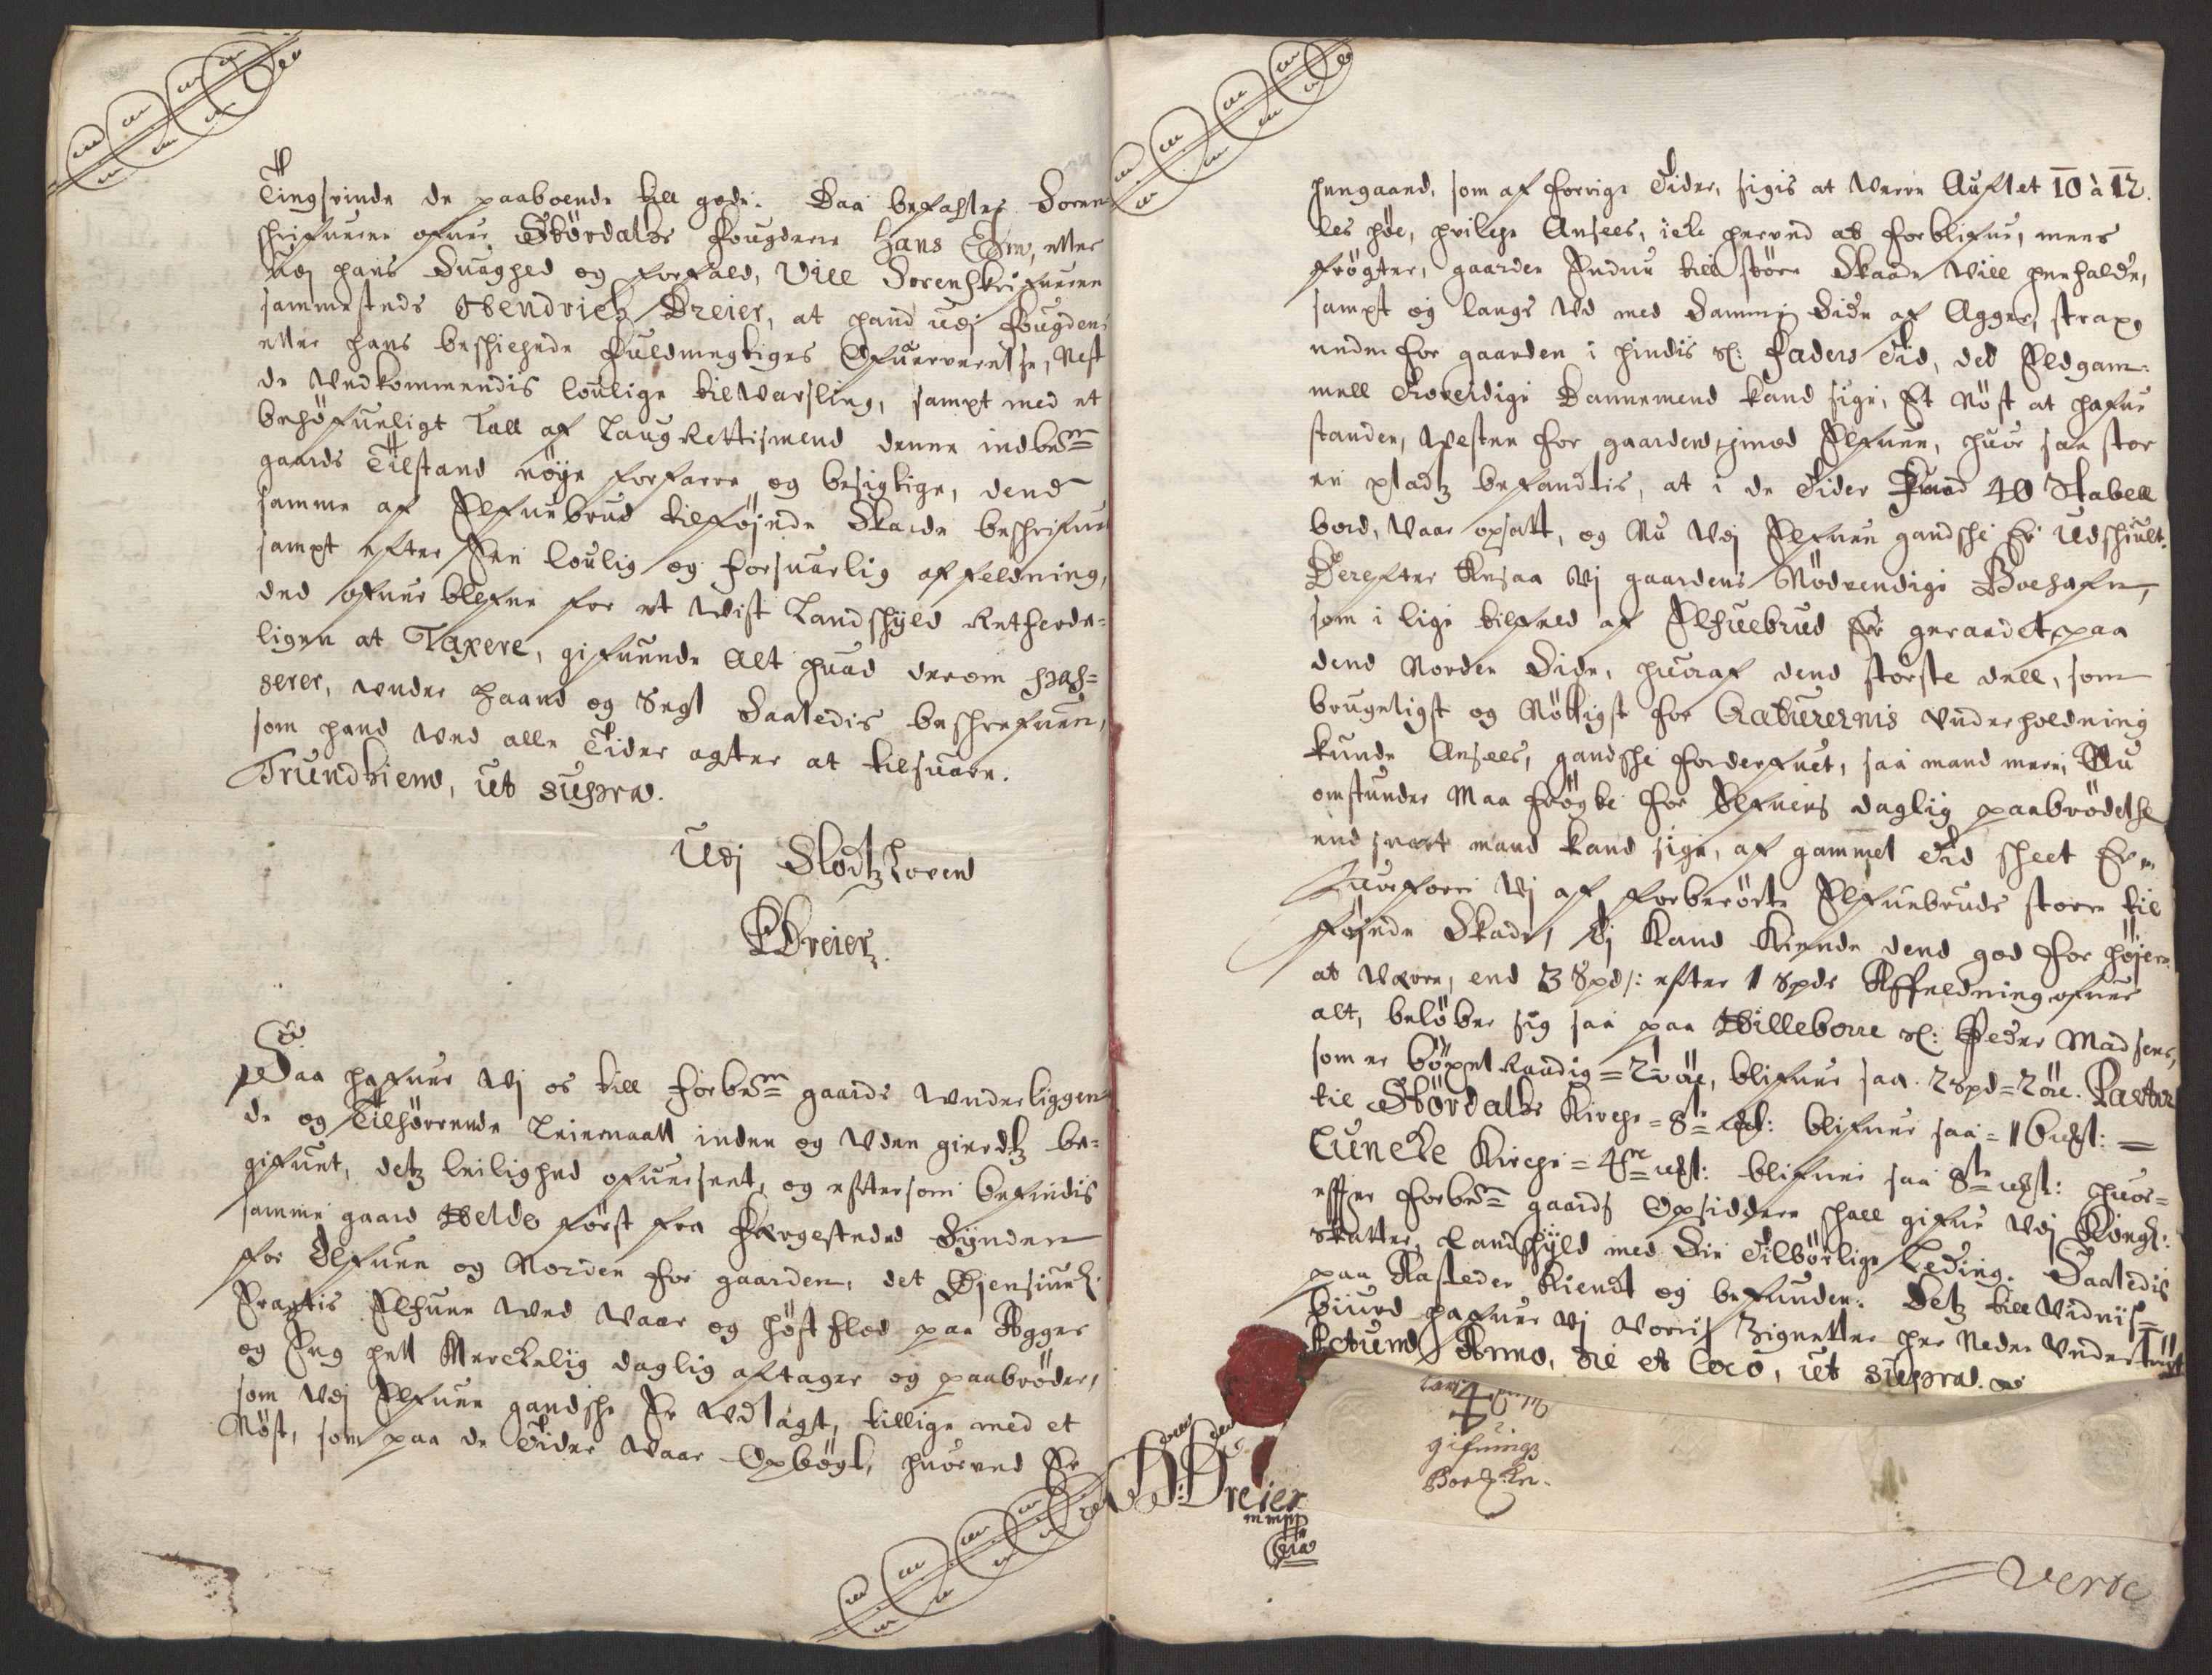 Tingsvinde de paaboende till gode. Daa befahles Soren
schrifueren ofuer Stördals fougderie Hans Ehm, eller
udj hans Suaghed og forfald, Vill Sorenskrifueren
sammesteds Hendrich Dreier, at hand udj fougdens
eller hans beschichede fuldmegtiges Ofuerverelse, Nest
de Vedkommendis loulige tilvarsling, sampt med et
behöfueligt Tall af Laug Rettismend denne indbem.te
gaards Tilstand nöye forfare og besigtige, dend
samme af Elfuebrud tilföjede Skade beschrifue
sampt efter Een loulig og forsuarlig affeldning,
ded ofuerblefne for et vist Landschyld Retferde-
ligen at Taxere, gifuende Alt huad derom pas-
serer, under Haand og Segl Saaledis beschrefuen,
som hand ved alle Tider agter at tilsuare.
Trundhiem, ut supra.
Udj Slodtz Loven
Dreier.
Saa hafuer Vj os till forbem.te gaards underliggen-
de og Tilhörrende Leiermaall inden og uden gierdtz be-
gifuet, detz leilighed ofuerseet, og eftersom befindis
samme gaard Velde först fra Fergestedet Synden
for Elfuen og Norden for gaarden, det Øjensiunl:
Fragtis Elfuen ved Vaar og Höst flod paa Agger
og Eng helt Merckelig daglig aftager og paabröder,
som udj Elfuen gandsche Er udlagt, tillige med et
Nöst, som paa de Tider Vaar Opbögt, huorved Er
hengaand, som af forrige Tider, sigis at Verre Auflet 10 à 12
les höe, huilche Ansees, icke herved at forblifue, mens
frögter, gaarden Endnu till störe Skade Vill heenhalde,
sampt og langs Ud med Samme Side af Agger, strax
neden for gaarden i hindis Sl: Faders Tid, ded Eldgam-
mell troverdige Dannemend kand sige, Et Nöst at hafue
standen, Vesten for gaarden, imod Elfuen, huor saa stor
en pladtz befandtis, at i de Tider Imod 40 Stabell
bord, Vaar opsatt, og Nu Udj Elfuen gandsche Er Udschiult.
Derefter Ansaa Vj gaardens Nödvendige Boehafn,
som i lige tilfeld af Elfuebrud Er geraadet paa
dend Norder Side, huoraf dend störste dell, som
brugeligst og Nöttigst for Creaturernis Underholdning
kunde Ansees, gandsche forderfuet, saa mand mere, Nu
omstunder Maa frögte for Elfuens daglig paabrödelse
end snart mand kand sige, af gammel Tid scheet Er
Huorfore Vj af forberörte Elfuebruds store til
föjede Skade, Ej Kand Kiende dend god for höjere
at Være, end 3 Spd: efter 1 Spds Affeldning ofuer
alt, belöber sig saa paa Villeborre Sl: Peder Madsens,
som er böxel Raadig = 2½ öre, blifuer saa 2 Spd = 2 öre.
til Stördals Kirche = 8 blifuer saa = 16
Luncke Kirche = 4 blifuer saa 8 huor-
effter forbem.te gaards Opsiddere schall gifue Udj Kongl:
Skatter, Landschyld med Sin Tilbörlige Leding. Saaledis
paa Aasteden Kiendt og befunden. Detz till Vidnis-
biurd hafuer Vj Vorris Zignetter her Neder Undertrögt
Actum Anno, die et loco, ut supra.
gifuings
H: Dreier
mmpp
Verte